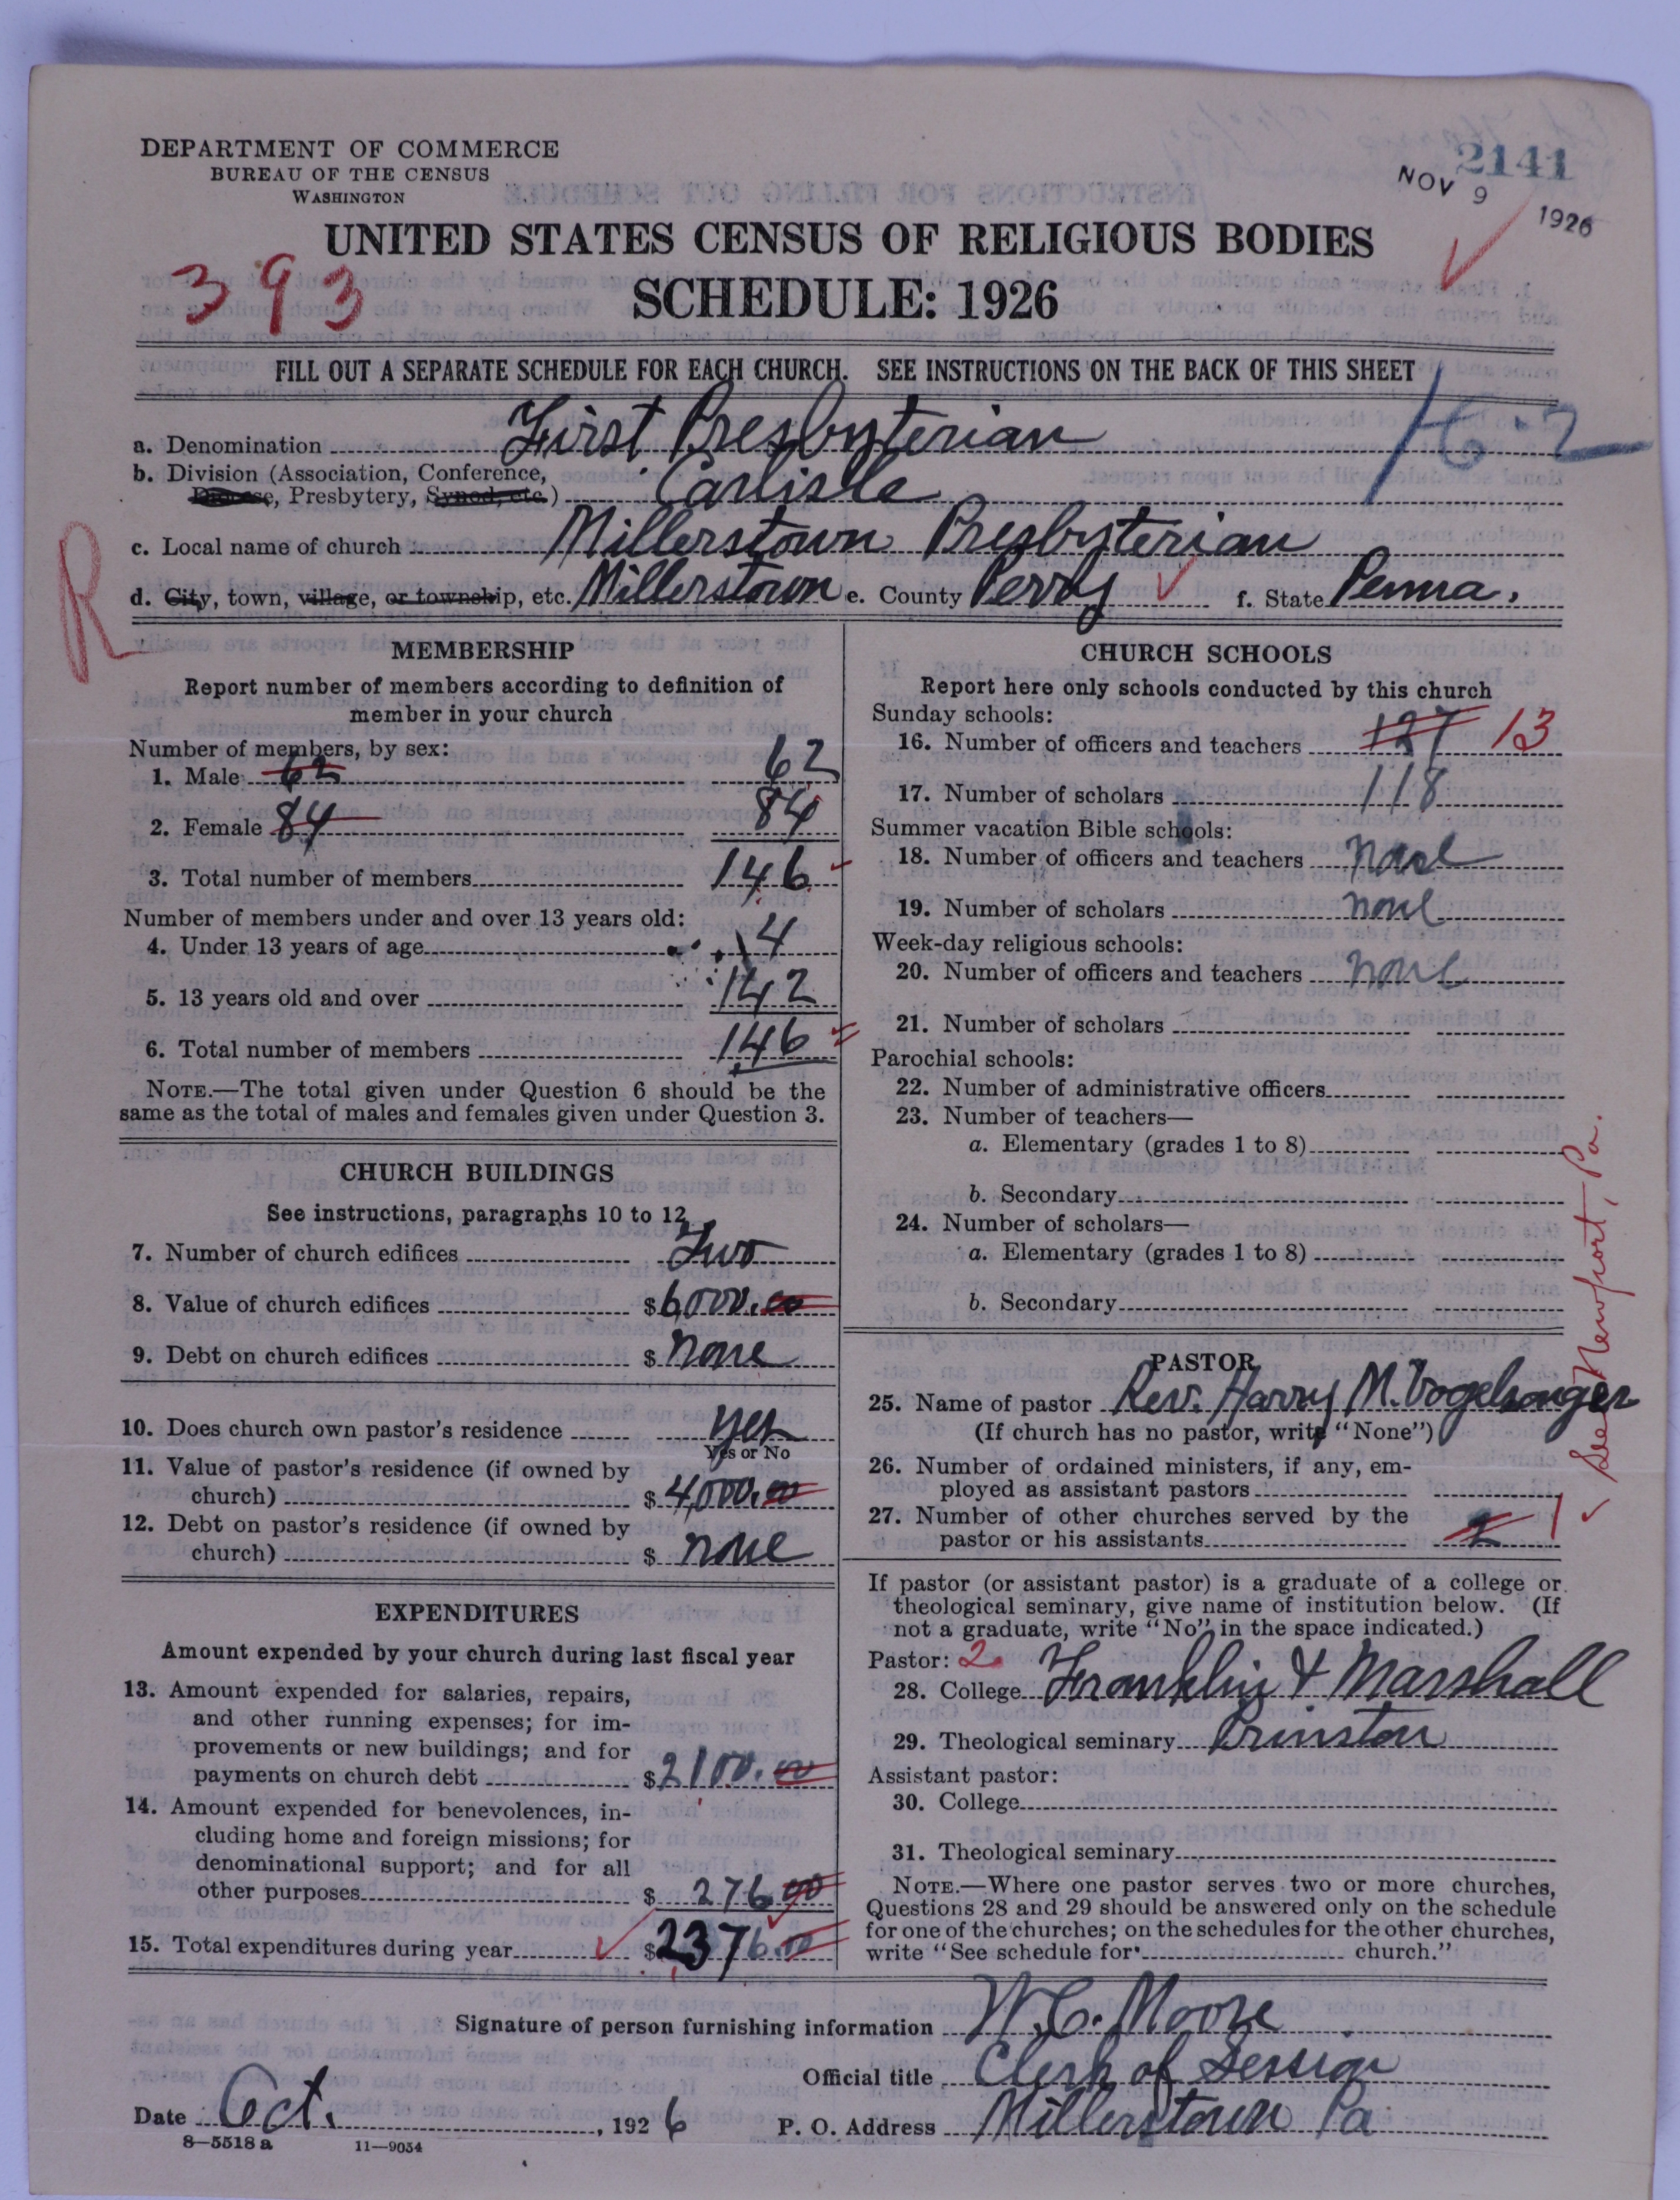 DEPARTMENT OF COMMERCE
BUREAU OF THE CENSUS
WASHINGTON
2141
NOV 9 1926
UNITED STATES CENSUS OF RELIGIOUS BODIES
393
SCHEDULE: 1926
FILL OUT A SEPARATE SCHEDULE FOR EACH CHURCH. SEE INSTRUCTIONS ON THE BACK OF THIS SHEET
a. Denomination First Presbyterian
16-2
b. Division (Association, Conference,
Diocese, Presbytery, Synod, etc.) Carlisle
c. Local name of church Millerstown Presbyterian
R
d. City, town, village, or township, etc. Millerstown e. County Perry f. State Penna.
MEMBERSHIP
Report number of members according to definition of
member in your church
Number of members, by sex:
1. Male 62 62
2. Female 84 84
3. Total number of members 146
Number of members under and over 13 years old:
4. Under 13 years of age 4
5. 13 years old and over 142
6. Total number of members 146
NOTE.—The total given under Question 6 should be the
same as the total of males and females given under Question 3.
CHURCH BUILDINGS
See instructions, paragraphs 10 to 12
7. Number of church edifices Two
8. Value of church edifices $ 6000.00
9. Debt on church edifices $ none
10. Does church own pastor's residence yes
Yes or No
11. Value of pastor's residence (if owned by
church) $ 4,000.00
12. Debt on pastor's residence (if owned by
church) $ none
EXPENDITURES
Amount expended by your church during last fiscal year
13. Amount expended for salaries, repairs,
and other running expenses; for im-
provements or new buildings; and for
payments on church debt $ 2100.00
14. Amount expended for benevolences, in-
cluding home and foreign missions; for
denominational support; and for all
other purposes $ 276 00
15. Total expenditures during year $ 2376.00
CHURCH SCHOOLS
Report here only schools conducted by this church
Sunday schools:
16. Number of officers and teachers 127 13
17. Number of scholars 118
Summer vacation Bible schools:
18. Number of officers and teachers none
19. Number of scholars none
Week-day religious schools:
20. Number of officers and teachers none
21. Number of scholars
Parochial schools:
22. Number of administrative officers
23. Number of teachers—
a. Elementary (grades 1 to 8)
b. Secondary
24. Number of scholars—
a. Elementary (grades 1 to 8)
b. Secondary
See Newport, Pa.
PASTOR
25. Name of pastor Rev. Harry M. Vogelsonger
(If church has no pastor, write "None")
26. Number of ordained ministers, if any, em-
ployed as assistant pastors
27. Number of other churches served by the
pastor or his assistants 2 1
If pastor (or assistant pastor) is a graduate of a college or
theological seminary, give name of institution below. (If
not a graduate, write "No" in the space indicated.)
Pastor: 2
28. College Franklin & Marshall
29. Theological seminary Prinston
Assistant pastor:
30. College
31. Theological seminary
NOTE.—Where one pastor serves two or more churches,
Questions 28 and 29 should be answered only on the schedule
for one of the churches; on the schedules for the other churches,
write "See schedule for church."
Signature of person furnishing information W. C. Moore
Official title Clerk of Session
Date Oct. , 1926 P. O. Address Millerstown Pa
8—5518 a 11—9034